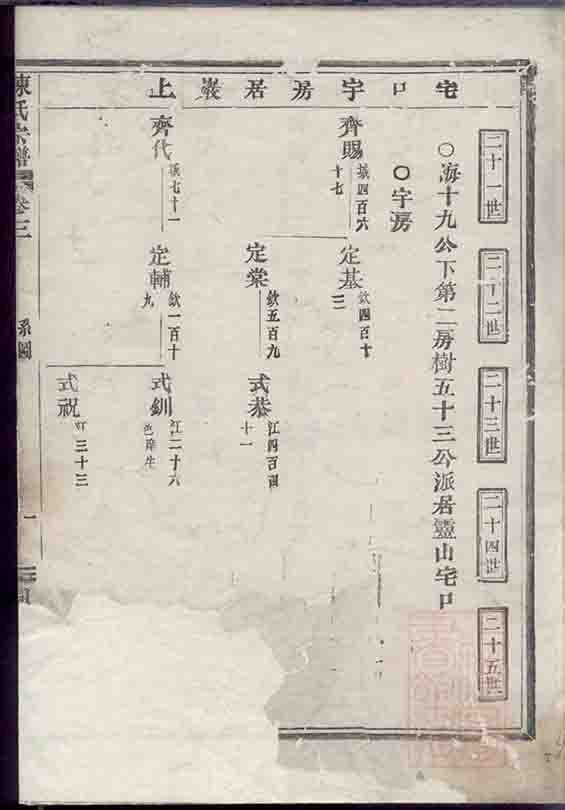 宅口宇房居巖上
二十一世
二十二世
二十三世
二十四世
二十五世
○海十九公下第二房樹五十三公派居靈山宅口
○宇房
齊賜
城四百六
十七
定基
欽四百十
三
定棠
欽五百九
式恭
江四百
十一
齊代
城七十一
定輔
欽一百十
九
式釧
江二十六
邑庠生
式祝
江三十三
陳氏宗譜
卷三
系圖
一